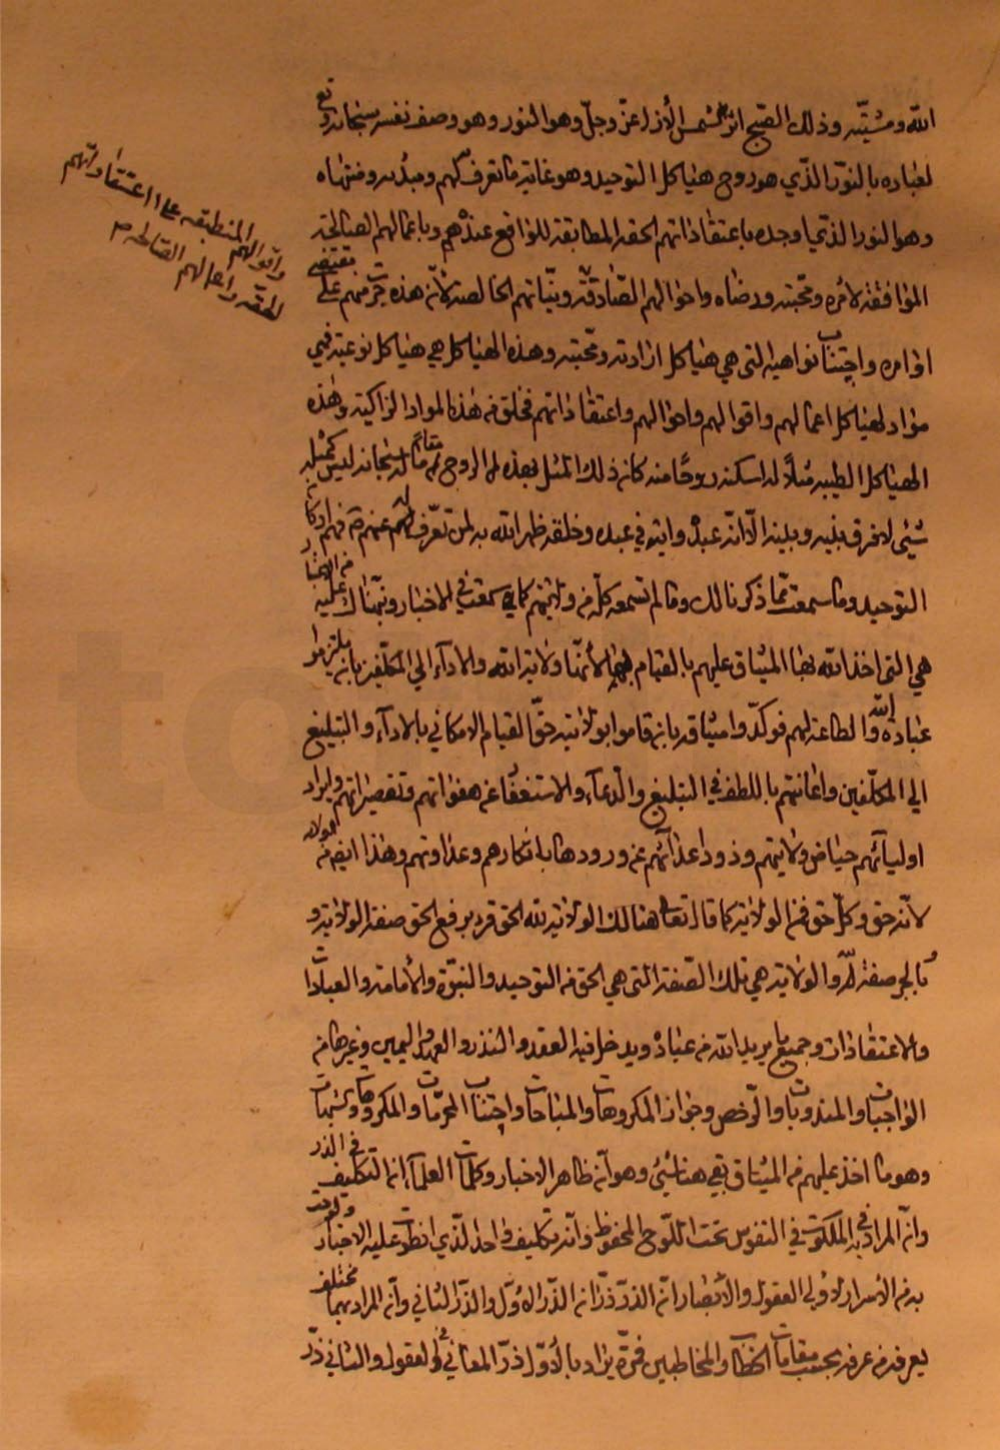 الله ومشيته وذلك الصبح اثر شمس الأزل عز وجل وهو النور وهو وصف نفسه سبحانه وتع
لعباده بالنور الذي هو روح هياكل التوحيد وهو غاية ما تعرف لهم ومبدئه ومنتهاه
وهو النور الذي اوجده باعتقاداتهم الحقة المطابقة للواقع عنده وباعمالهم الصالحة
الموافقة لامره ومحبته ورضاه واحوالهم الصادقة ونياتهم الخالصة لأن هذه جرت منهم على مقتضى
اوامره واجتناب نواهيه التي هي هياكل ارادته ومحبته وهذه الهياكل هي هياكل نوعية فهي
مواد لهياكل اعمالهم واقوالهم واحوالهم واعتقاداتهم فخلق من هذه المواد الزاكية وهذه
الهياكل الطيبة مثلاً له اسكنه روحًا منه كان ذلك المثل بهذه الروح مقام له سبحانه ليس كمثله
شيء لا فرق بينه وبينه الا انه عبده وايته في عبده وخلقه ظهر الله به لمن تعرف له منهم اركان
التوحيد وما سمعت مما ذكرنا لك وما لم تسمعه كله من ولايتهم كما سمعت في الاخبار ونبهناك عليه من الاعتبار
هي التي اخذ الله بها الميثاق عليهم بالقيام بها لأنها ولاية الله والاداء الى المكلفين بان يلتزموا
عبادة الله والطاعة لهم فوكدوا ميثاقه بان قاموا بولايته حق القيام الامكاني بالاداء والتبليغ
الى المكلفين واعانتهم باللطف في التبليغ والدعاء والاستغفار عن هفواتهم وتقصيراتهم وايراد
اوليائهم حياض ولايتهم وذود اعدائهم عن ورودها بانكارهم وعداوتهم وهذا ايضا من الولاية
لأنه حق وكل حق فمن الولاية كما قال تعالى هنالك الولاية لله الحق قرء برفع الحق صفة الولاية و
بالجر صفة لله والولاية هي تلك الصفة التي هي الحق من التوحيد والنبوة والأمامة والعبادات
والاعتقادات وجميع ما يريد الله من عباده ويدخل فيه العقد والنذر والعهد واليمين وغيرها من
الواجبات والمندوبات والرخص وجواز المكروهات والمباحات واجتناب المحرمات والمكروهات والشبهات
وهو ما اخذ عليهم من الميثاق بقي هنا شيء وهو أن ظاهر الاخبار وكلمات العلماء ان التكليف في الذر
وأن المراد به في الملكوت في النفوس تحت اللوح المحفوظ وانه تكليف واحد والذي انطوت عليه الاخبار ولوحت
به من الأسرار لاولي العقول والأبصار ان الذر ذران الذر الاول والذر الثاني وأن المراد بهما مختلف
يعرفه من عرفه بحسب مقامات الخطاب والمخاطبين فمرة يراد بالأول ذر المعاني في العقول والثاني ذر
واقوالهم المنطبقة على اعتقاداتهم
الحقة واعمالهم الصالحة